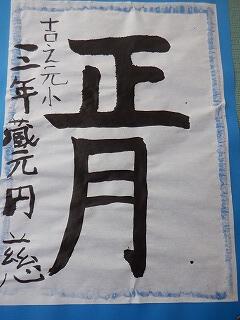 正月
古之元小
三年蔵元円慈